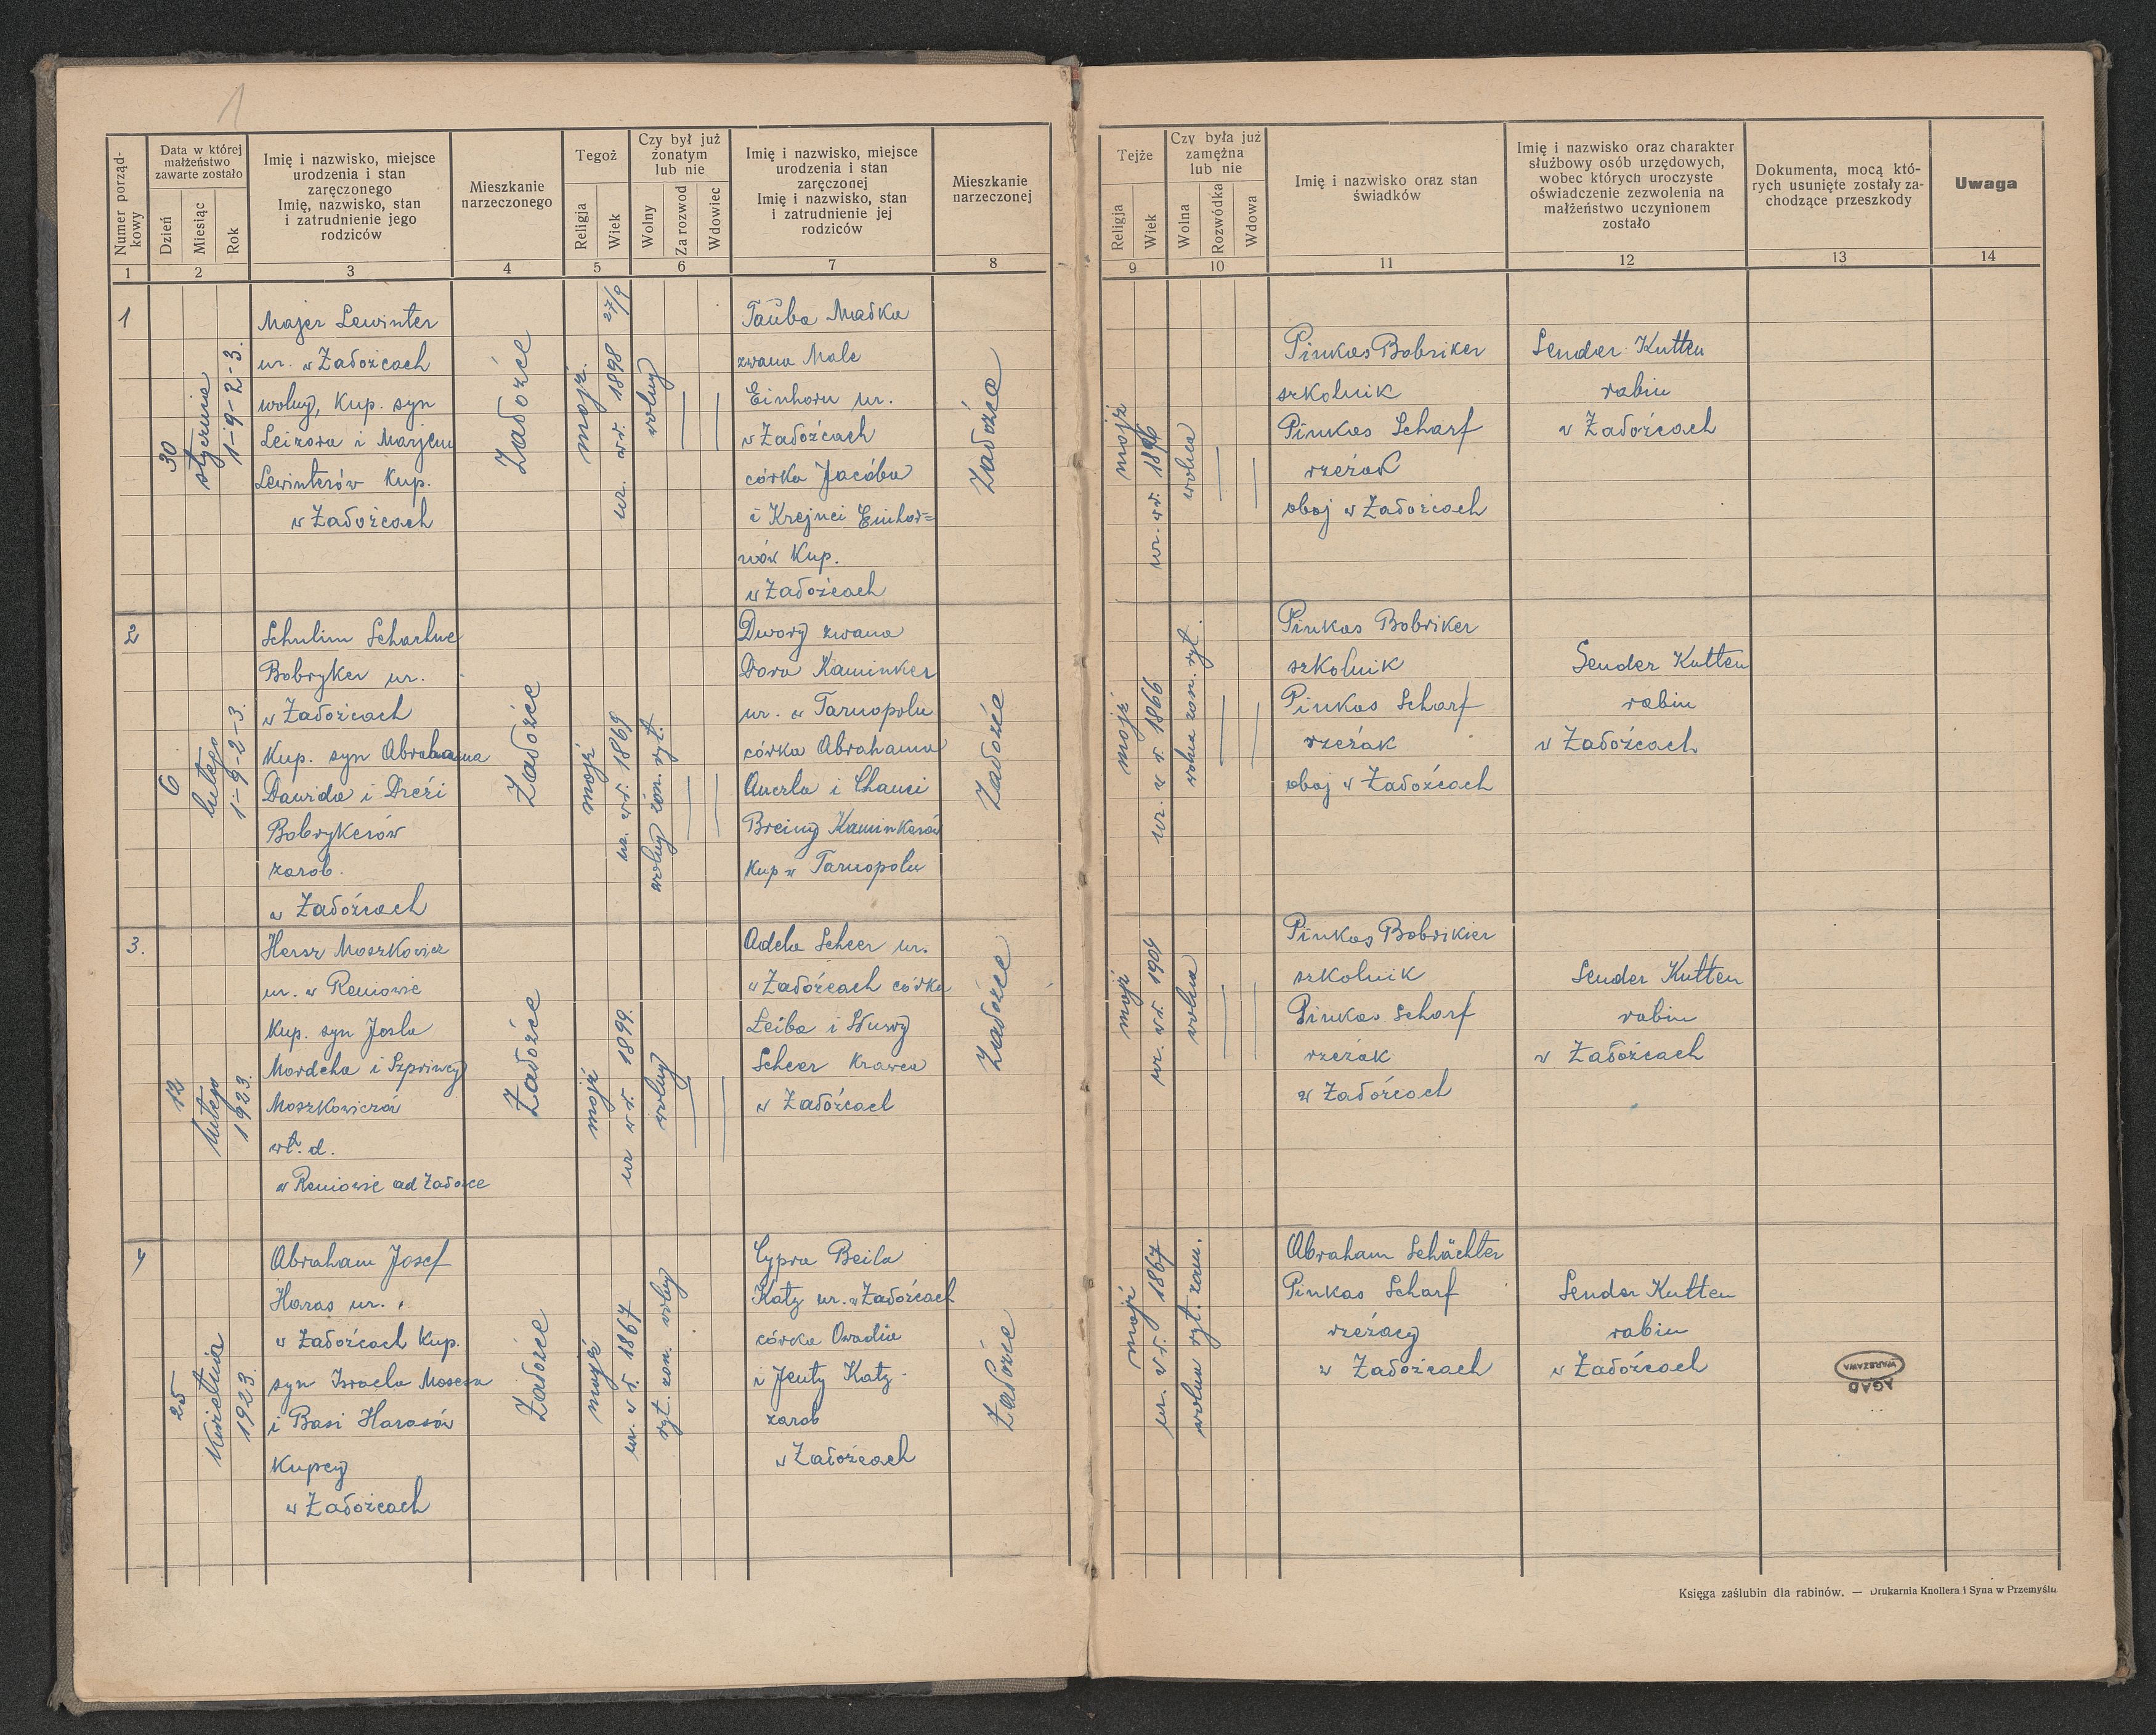 1
Numer porząd-
kowy
Data w której
małżeństwo
zawarte zostało
Dzień
Miesiąc
Rok
Imię i nazwisko, miejsce
urodzenia i stan
zaręczonego
Imię, nazwisko, stan
i zatrudnienie jego
rodziców
Mieszkanie
narzeczonego
Tegoż
Religja
Wiek
Czy był już
żonatym
lub nie
Wolny
Za rozwod
Wdowiec
Imię i nazwisko, miejsce
urodzenia i stan
zaręczonej
Imię i nazwisko, stan
i zatrudnienie jej
rodziców
Mieszkanie
narzeczonej
Tejże
Religja
Wiek
Czy była już
zamężna
lub nie
Wolna
Rozwódka
Wdowa
Imię i nazwisko oraz stan
świadków
Imię i nazwisko oraz charakter
służbowy osób urzędowych,
wobec których uroczyste
oświadczenie zezwolenia na
małżeństwo uczynionem
zostało
Dokumenta, mocą któ-
rych usunięte zostały za-
chodzące przeszkody
Uwaga
1 2 3 4 5 6 7 8 9 10 11 12 13 14
1
30
stycznia
1-9-2-3.
Majer Lewinter
ur. w Załoźcach
wolny, kup. syn
Leizora i Marjem
Lewinterów kup.
w Załoźcach
Załoźce
mojż.
ur. w r. 1898 27/9
wolny
Tauba Małka
zwana Male
Einhorn ur.
w Załoźcach
córka Jacóba
i Krejnci Einhor=
nów kup.
w Załoźcach
Załoźce
mojż
ur. w r. 1896
wolna
Pinkas Bobriker
szkolnik
Pinkas Scharf
rzeźak
obaj w Załoźcach
Sender Kutten
rabin
w Załoźcach
2
6
lutego
1-9-2-3.
Schulim Schachne
Bobryker ur.
w Załoźcach
kup. syn Abrahama
Dawida i Dreźi
Bobrykerów
zarob.
w Załoźcach
Załoźce
mojż
ur. w r. 1869
wolny żon. ryt.
Dwory zwana
Dora Kaminker
ur. w Tarnopolu
córka Abrahama
Anczla i Chanci
Breiny Kaminkerów
kup w Tarnopolu
Załoźce
mojż
ur. w r. 1866
wolna zam. ryt.
Pinkas Bobriker
szkolnik
Pinkas Scharf
rzeźak
obaj w Załoźcach
Sender Kutten
rabin
w Załoźcach
3.
12
lutego
1923.
Hersz Moszkowicz
ur. w Reniowie
kup. syn Josla
Mordcha i Szprincy
Moszkowiczów
wł. d.
w Reniowie ad Załoźce
Załoźce
mojż
ur w r. 1899.
wolny
Adela Scheer ur.
w Załoźcach córka
Leiba i
Scheer krawca
w Załoźcach
Załoźce
mojż
ur. w r. 1904
wolna
Pinkas Bobrikier
szkolnik
Pinkas Scharf
rzeźak
w Załoźcach
Sender Kutten
rabin
w Załoźcach
4
25
kwietnia
1923.
Abraham Josef
Haras ur.
w Załoźcach kup.
syn Izraela Mosesa
i Basi Harasów
kupcy
w Załoźcach
Załoźce
mojż
ur. w r. 1867
ryt. żon. wolny
Cypra Beila
Katz ur. w Załoźcach
córka Owadie
i Jenty Katz
zarob
w Załoźcach
Załoźce
mojż
ur. w r. 1867
wolna ryt. zam.
Abraham Schächter
Pinkas Scharf
rzeźacy
w Załoźcach
Sender Kutten
rabin
w Załoźcach
AGAD
WARSZAWA
Księga zaślubin dla rabinów. — Drukarnia Knollera i Syna w Przemyślu